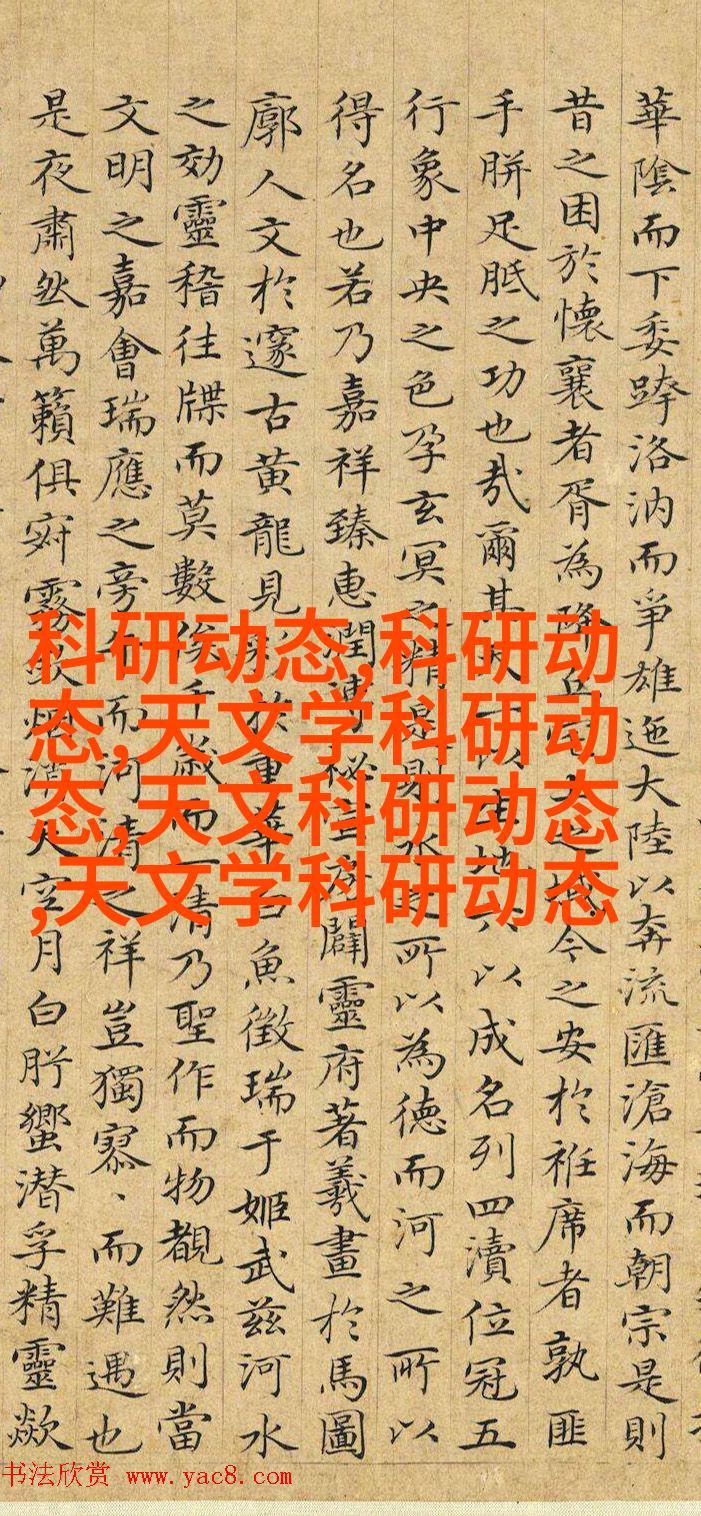 華陰而下委跨洛汭而爭雄迤大陸以奔流匯滄海而朝宗是則
昔之困於懷襄者胥為降丘之域今之安於袵席者孰匪
手胼足胝之功也哉爾其天一以地六以成名列四瀆位冠五
行象中央之色孕玄冥之精是則水之所以為德而河之所以
得名也若乃嘉祥臻惠潤溥秘闢靈府著羲畫於馬圖
廓人文於邃古黃龍見於重華白魚徵瑞于姬武茲河水
之効靈稽往牒而莫數俟千歲而一清乃聖作而物覩然則當
文明之嘉會瑞應之旁午而河清之祥豈獨寥、而難遇也
是夜肅然萬籟俱寂霧斂烟消天空月白肸蠁潛孚精靈歘
科研动态,科研动
态,天文学科研动
态,天文科研动态
,天文学科研动态
书法欣赏 www.yac8.com